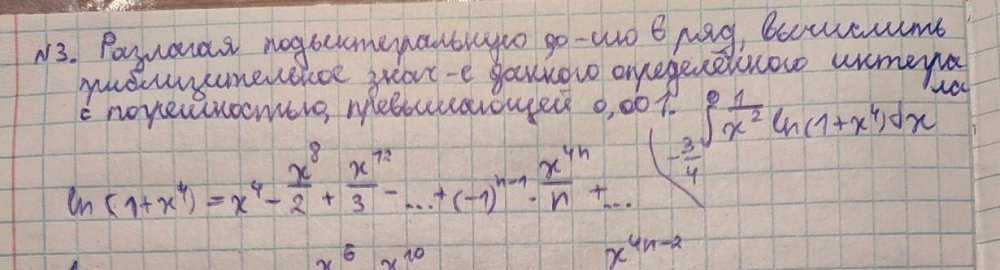 N3. Разлагая подынтегральную ф-цию в ряд, вычислить
приблизительное знач-е данного определённого интегра
ла
с погрешностью, превышающей 0,001. ∫_{-3/4}^{0} 1/x² ln(1+x⁴)dx
ln(1+x⁴) = x⁴ - x⁸/2 + x¹²/3 - ... + (-1)ⁿ⁻¹ · x⁴ⁿ/n + ...
x⁶ x¹⁰ x⁴ⁿ⁻²